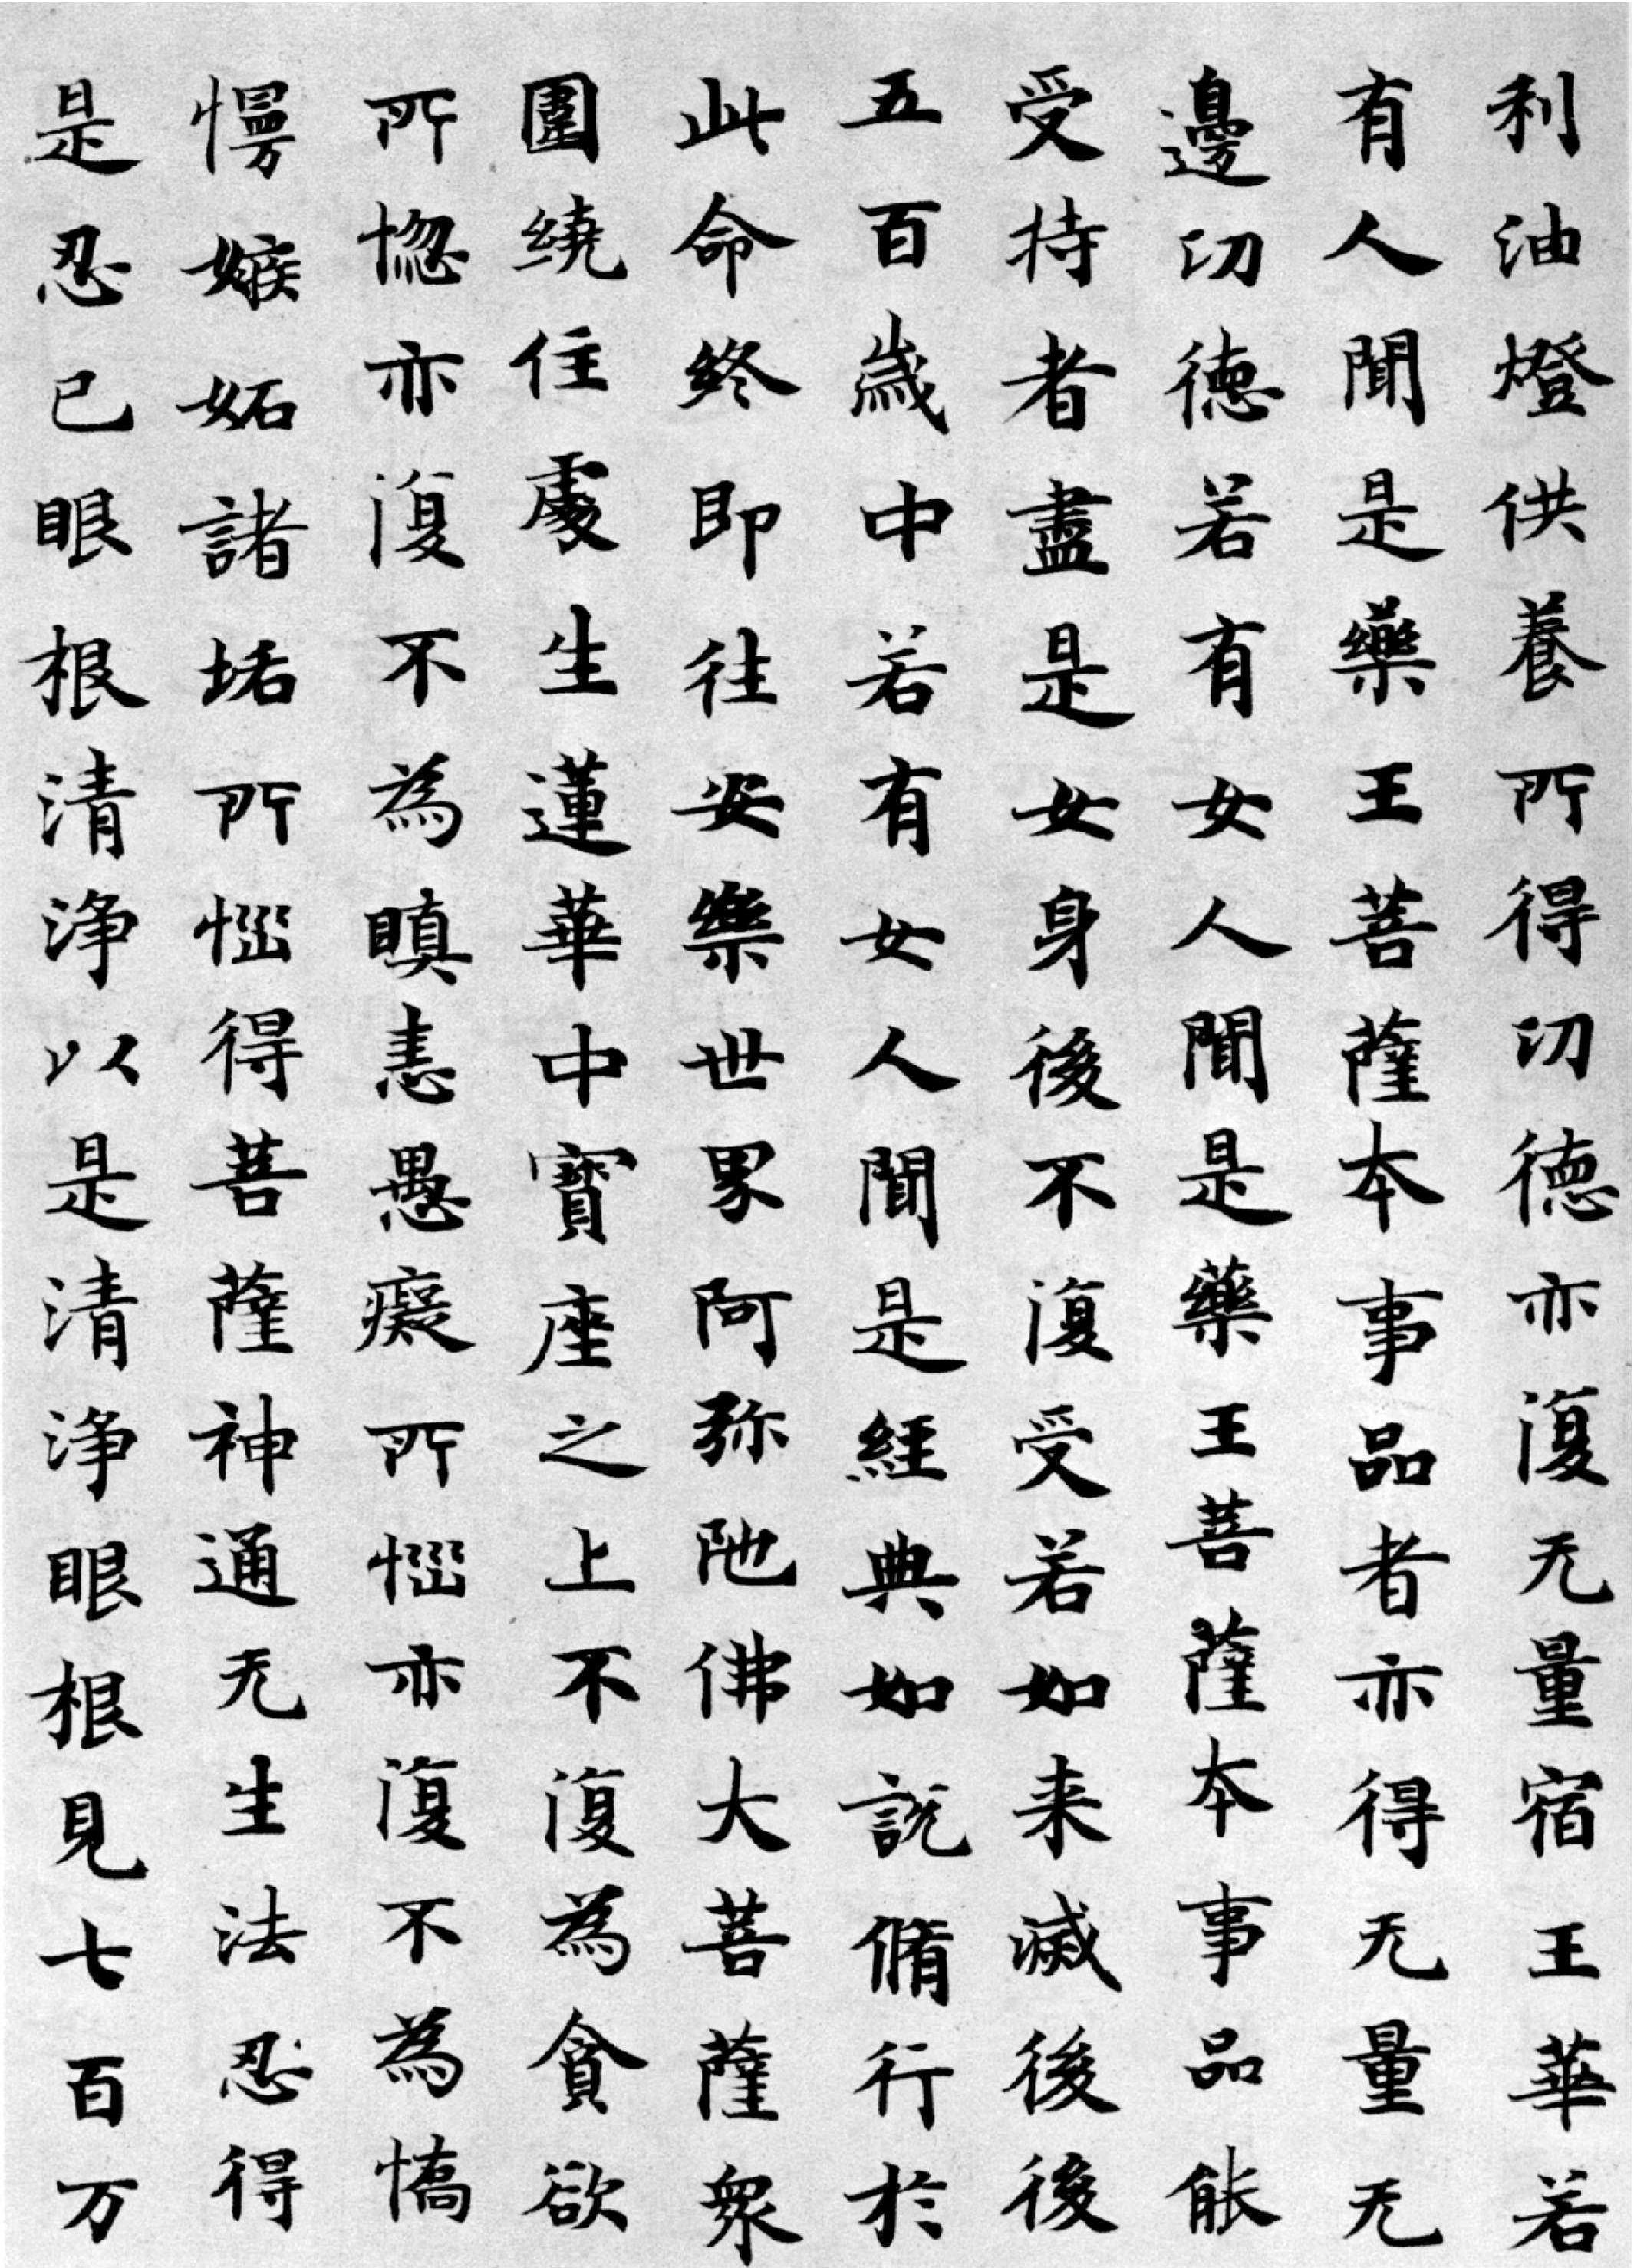 利油燈供養所得功德亦復无量宿王華若
有人聞是藥王菩薩本事品者亦得无量无
邊功德若有女人聞是藥王菩薩本事品能
受持者盡是女身後不復受若如来滅後後
五百歲中若有女人聞是經典如說脩行於
此命終即往安樂世界阿弥陁佛大菩薩衆
圍繞住處生蓮華中寶座之上不復為貪欲
所惱亦復不為瞋恚愚癡所惱亦復不為憍
慢嫉妬諸垢所惱得菩薩神通无生法忍得
是忍已眼根清淨以是清淨眼根見七百万